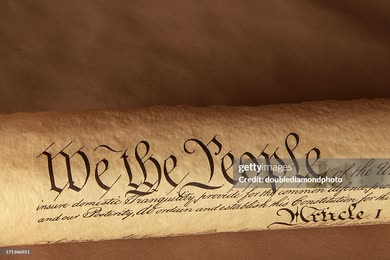 We the People of the Un
insure domestic Tranquility, provide for the common defence,
and our Posterity, do ordain and establish this Constitution for the
Article I
gettyimages
Credit: doublediamondphoto
171346931